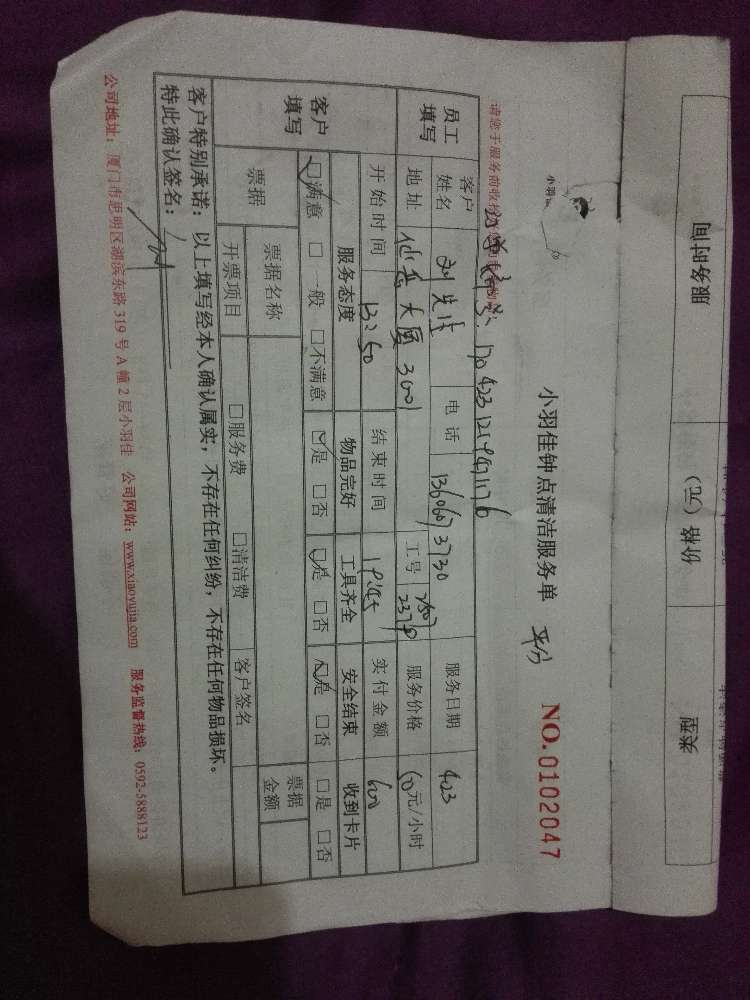 小羽佳钟点清洁服务单 平分 NO.0102047
请您于服务前收
客户姓名 刘先生 电话 13606073730 服务日期 423
员工填写 地址 仙岳大厦3001 工号 2507 2370 服务价格 60元/小时
开始时间 13:50 结束时间 实付金额 600
客户填写 服务态度 物品完好 工具齐全 安全结束 收到卡片
☑满意 □一般 □不满意 ☑是 □否 ☑是 □否 ☑是 □否 □是 □否
票据 票据名称 票据金额
开票项目 □服务费 □清洁费 客户签名
客户特别承诺:以上填写经本人确认属实,不存在任何纠纷,不存在任何物品损坏。
特此确认签名:
公司地址:厦门市思明区湖滨东路319号A幢2层小羽佳 公司网站:www.xiaoyujia.com 服务监督热线:0592-5888123
服务时间 价格(元) 类型